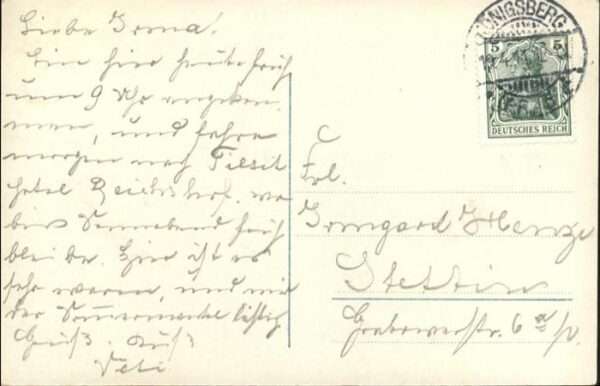 Liebe Irma.
Bin hier heute früh
um 9 Uhr angekom
men, und fahre
morgen nach Tilsit
Hotel Reichshof. wo
bis Sonnabend früh
bleibe. Hier ist es
sehr warm, und mir
der Sommermantel lästig
Gruß. Kuß
KÖNIGSBERG
5 5
DEUTSCHES REICH
Frl.
Irmgard Henze
Stettin
Grabowerstr. 6